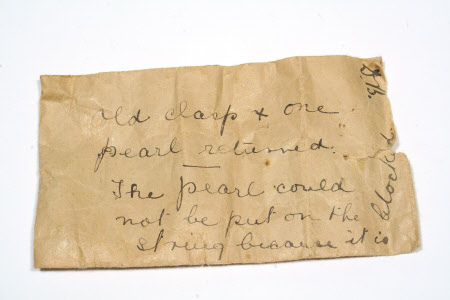 old clasp & one
pearl returned.
The pearl could
not be put on the
string because it is
blocked